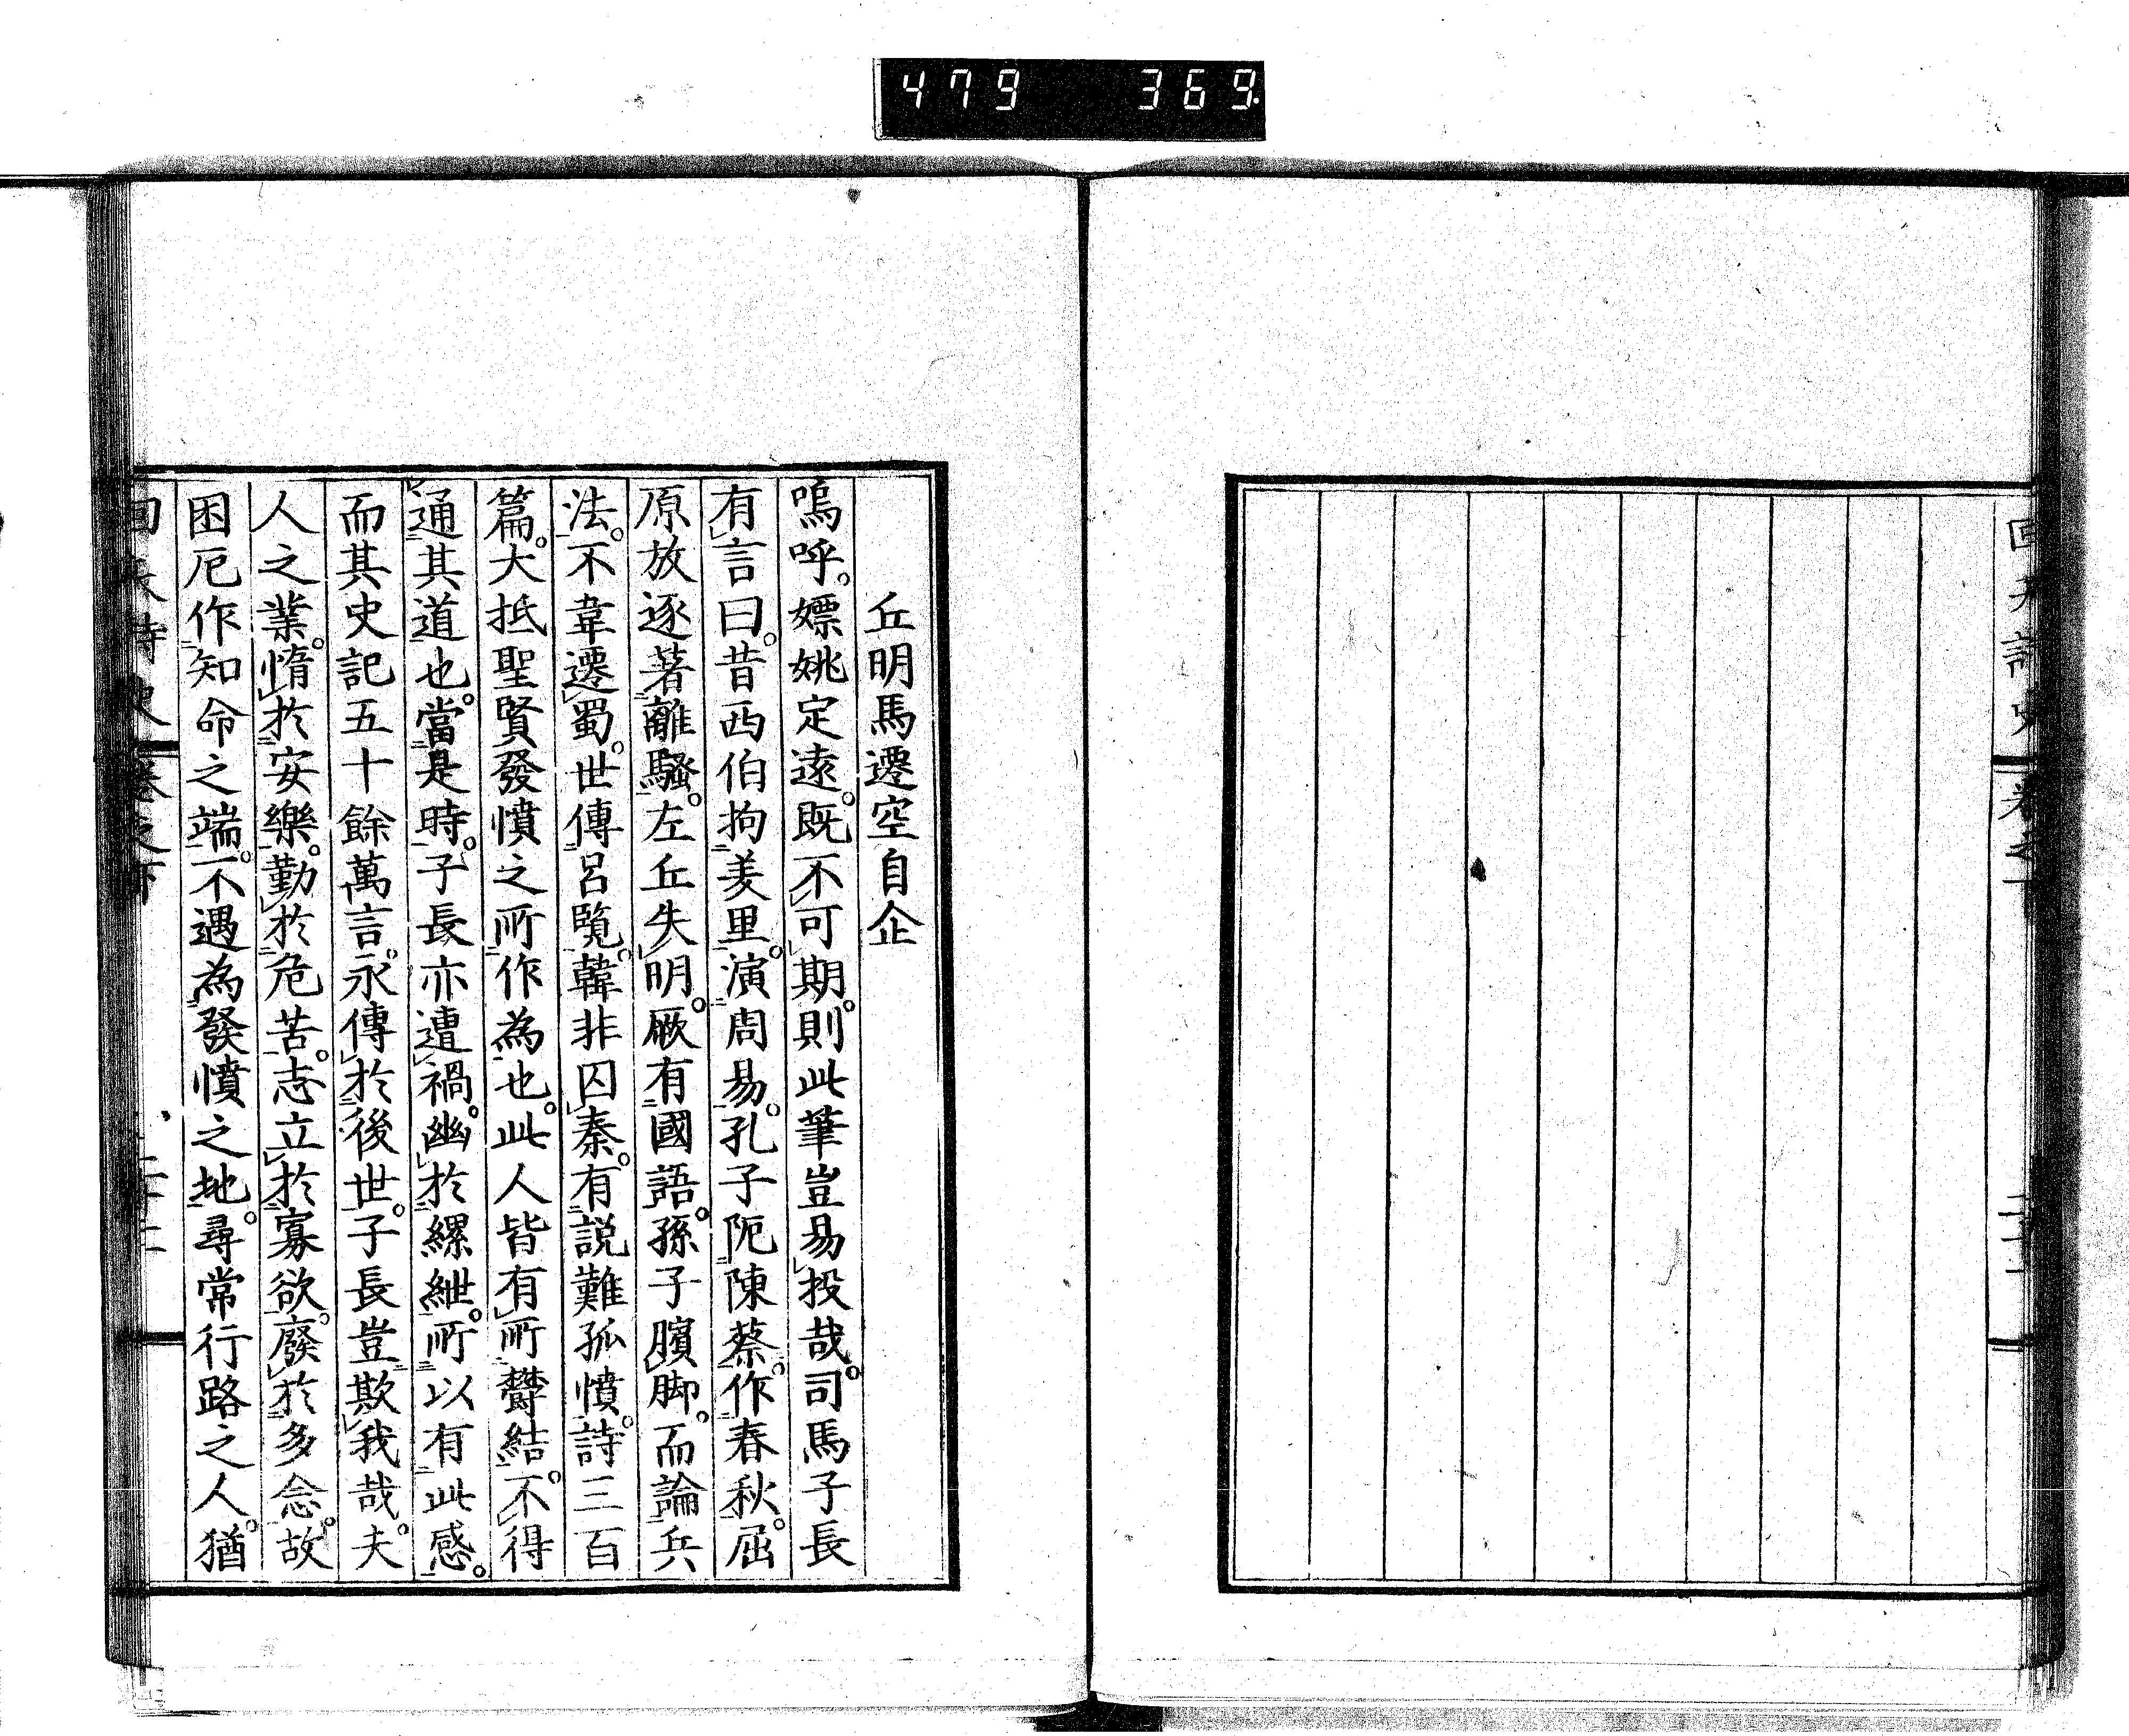 479 369
丘明馬遷空自企
嗚呼。嫖姚定遠。既不可期。則此筆豈易投哉。司馬子長
有言曰。昔西伯拘羑里。演周易。孔子阨陳蔡。作春秋。屈
原放逐著離騷。左丘失明。厥有國語。孫子臏脚。而論兵
法。不韋遷蜀。世傳呂覽。韓非囚秦。有説難孤憤。詩三百
篇。大抵聖賢發憤之所作為也。此人皆有所欝結。不得
通其道也。當是時。子長亦遭禍。幽於縲紲。所以有此感。
而其史記五十餘萬言。永傳於後世。子長豈欺我哉。夫
人之業。惰於安樂。勤於危苦。志立於寡欲。廢於多念。故
困厄作知命之端。不遇為發憤之地。尋常行路之人。猶